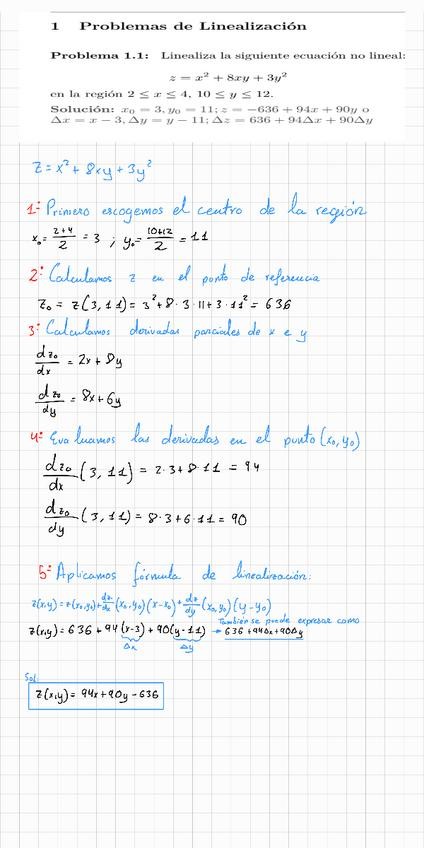 1 Problemas de Linealización
Problema 1.1: Linealiza la siguiente ecuación no lineal:
z = x² + 8xy + 3y²
en la región 2 ≤ x ≤ 4, 10 ≤ y ≤ 12.
Solución: x₀ = 3, y₀ = 11; z = −636 + 94x + 90y o
Δx = x − 3, Δy = y − 11; Δz = 636 + 94Δx + 90Δy
z = x² + 8xy + 3y²
1º Primero escogemos el centro de la región
x₀ = (2+4)/2 = 3 ; y₀ = (10+12)/2 = 11
2º Calculamos z en el punto de referencia
z₀ = z(3,11) = 3² + 8·3·11 + 3·11² = 636
3º Calculamos derivadas parciales de x e y
dz₀/dx = 2x + 8y
dz₀/dy = 8x + 6y
4º Evaluamos las derivadas en el punto (x₀, y₀)
dz₀/dx (3, 11) = 2·3 + 8·11 = 94
dz₀/dy (3, 11) = 8·3 + 6·11 = 90
5º Aplicamos fórmula de linealización:
z(x,y) = z(x₀,y₀) + dz/dx (x₀,y₀)(x−x₀) + dz/dy (x₀,y₀)(y−y₀)
También se puede expresar como
z(x,y) = 636 + 94(x−3) + 90(y−11) → 636 + 94Δx + 90Δy
Δx Δy
Sol:
z(x,y) = 94x + 90y − 636